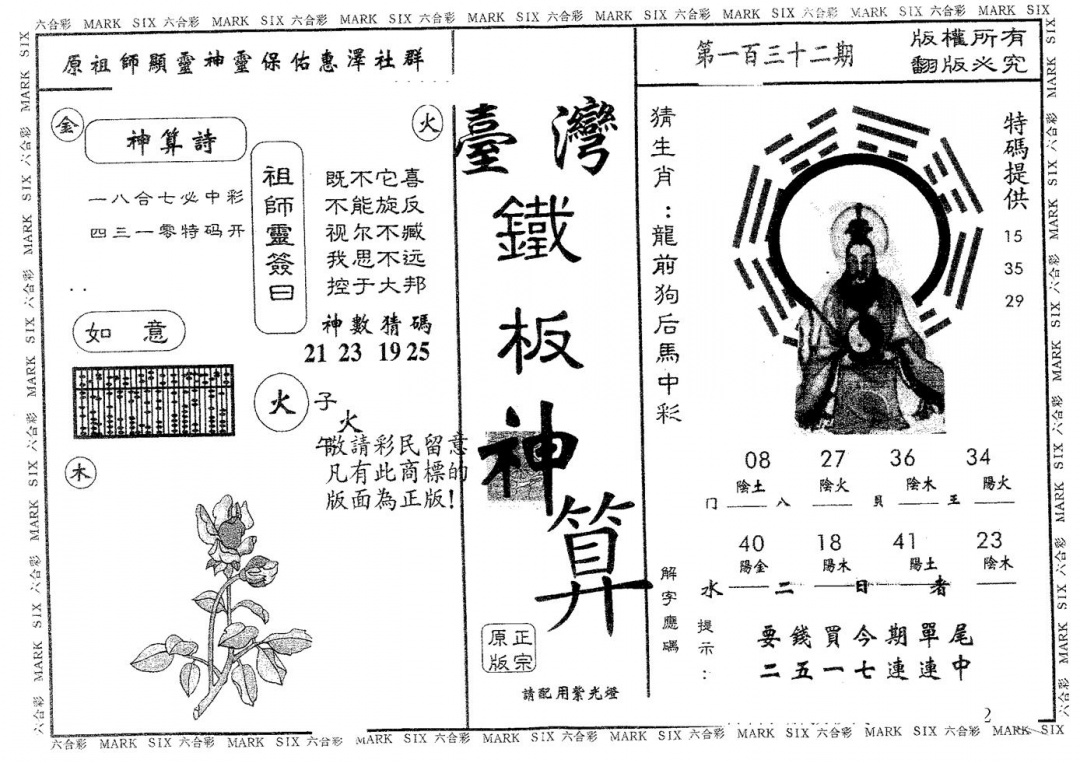 六合彩 MARK SIX 六合彩 MARK SIX 六合彩 MARK SIX 六合彩 MARK SIX 六合彩 MARK SIX 六合彩 MARK SIX 六合彩 MARK SIX 六合彩 MARK SIX
原祖師顯靈神靈保佑惠澤社群
金
神算詩
火
一八合七必中彩
四三一零特码开
祖師靈簽曰
既不它喜
不能旋反
视尔不臧
我思不远
控于大邦
神數猜碼
21 23 19 25
如意
火
子
火
午
敬請彩民留意
凡有此商標的
版面為正版!
木
臺灣
鐵板神算
正宗
原版
請配用紫光燈
第一百三十二期
版權所有
翻版必究
猜生肖:龍前狗后馬中彩
特碼提供
15
35
29
08 27 36 34
陰土 陰火 陰木 陽火
门 八 貝 王
40 18 41 23
陽金 陽木 陽土 陰木
水 二 日 者
解字應碼
提示:
要錢買今期單尾
二五一七連連中
2
六合彩 MARK SIX 六合彩 MARK SIX 六合彩 MARK SIX 六合彩 MARK SIX 六合彩 MARK SIX 六合彩 MARK SIX 六合彩 MARK SIX 六合彩 MARK SIX